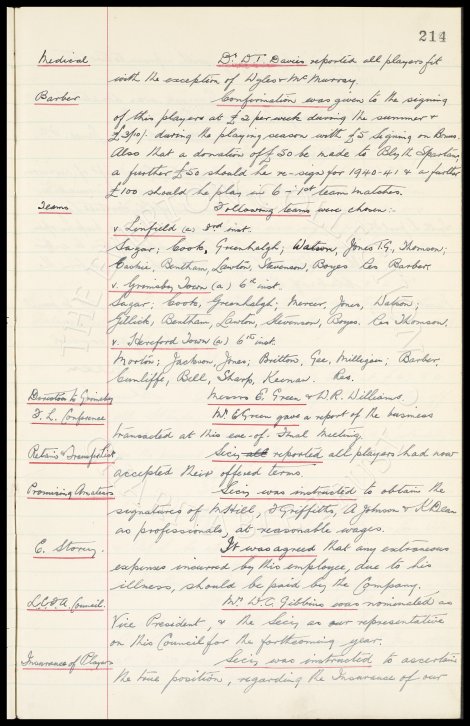 214
Medical Dr. D.T. Davies reported all players fit
with the exception of Wyles & McMurray.
Barber Confirmation was given to the signing
of this players at £2 per week during the summer &
£3/10/- during the playing season with £5 Signing on Bonus.
Also that a donation of £50 be made to Blyth Spartans,
a further £50 should he re-sign for 1940-41 & a further
£100 should he play in 6 - 1st team matches.
Teams Following teams were chosen:-
v. Linfield (a) 3rd inst.
Sagar; Cook, Greenhalgh; Watson, Jones T.G., Thomson;
Caskie, Bentham, Lawton, Stevenson, Boyes. Res Barber.
v. Grimsby Town (a) 6th inst.
Sagar; Cook, Greenhalgh; Mercer, Jones, Watson;
Gillick, Bentham, Lawton, Stevenson, Boyes. Res Thomson.
v. Hereford Town (a) 6th inst.
Morton; Jackson, Jones; Britton, Gee, Milligan; Barber,
Cunliffe, Bell, Sharp, Keenan. Res.
Directors to Grimsby Messrs E. Green & W.R. Williams.
F. L. Conference Mr. E Green gave a report of the business
transacted at this eve-of-Final Meeting.
Retain & Transfer List Secy all reported all players had now
accepted their offered terms
Promising Amateurs Secy was instructed to obtain the
signatures of M Hill, J Griffiths, A Johnson & K Bean
as professionals, at reasonable wages.
E. Storey. It was agreed that any extraneous
expenses incurred by this employee, due to his
illness, should be paid by the Company.
L.C.F.A Council. Mr. W.C. Gibbins was nominated as
Vice President, & the Secy as our representative
on this Council for the forthcoming year.
Insurance of Players Secy was instructed to ascertain
the true position, regarding the Insurance of our